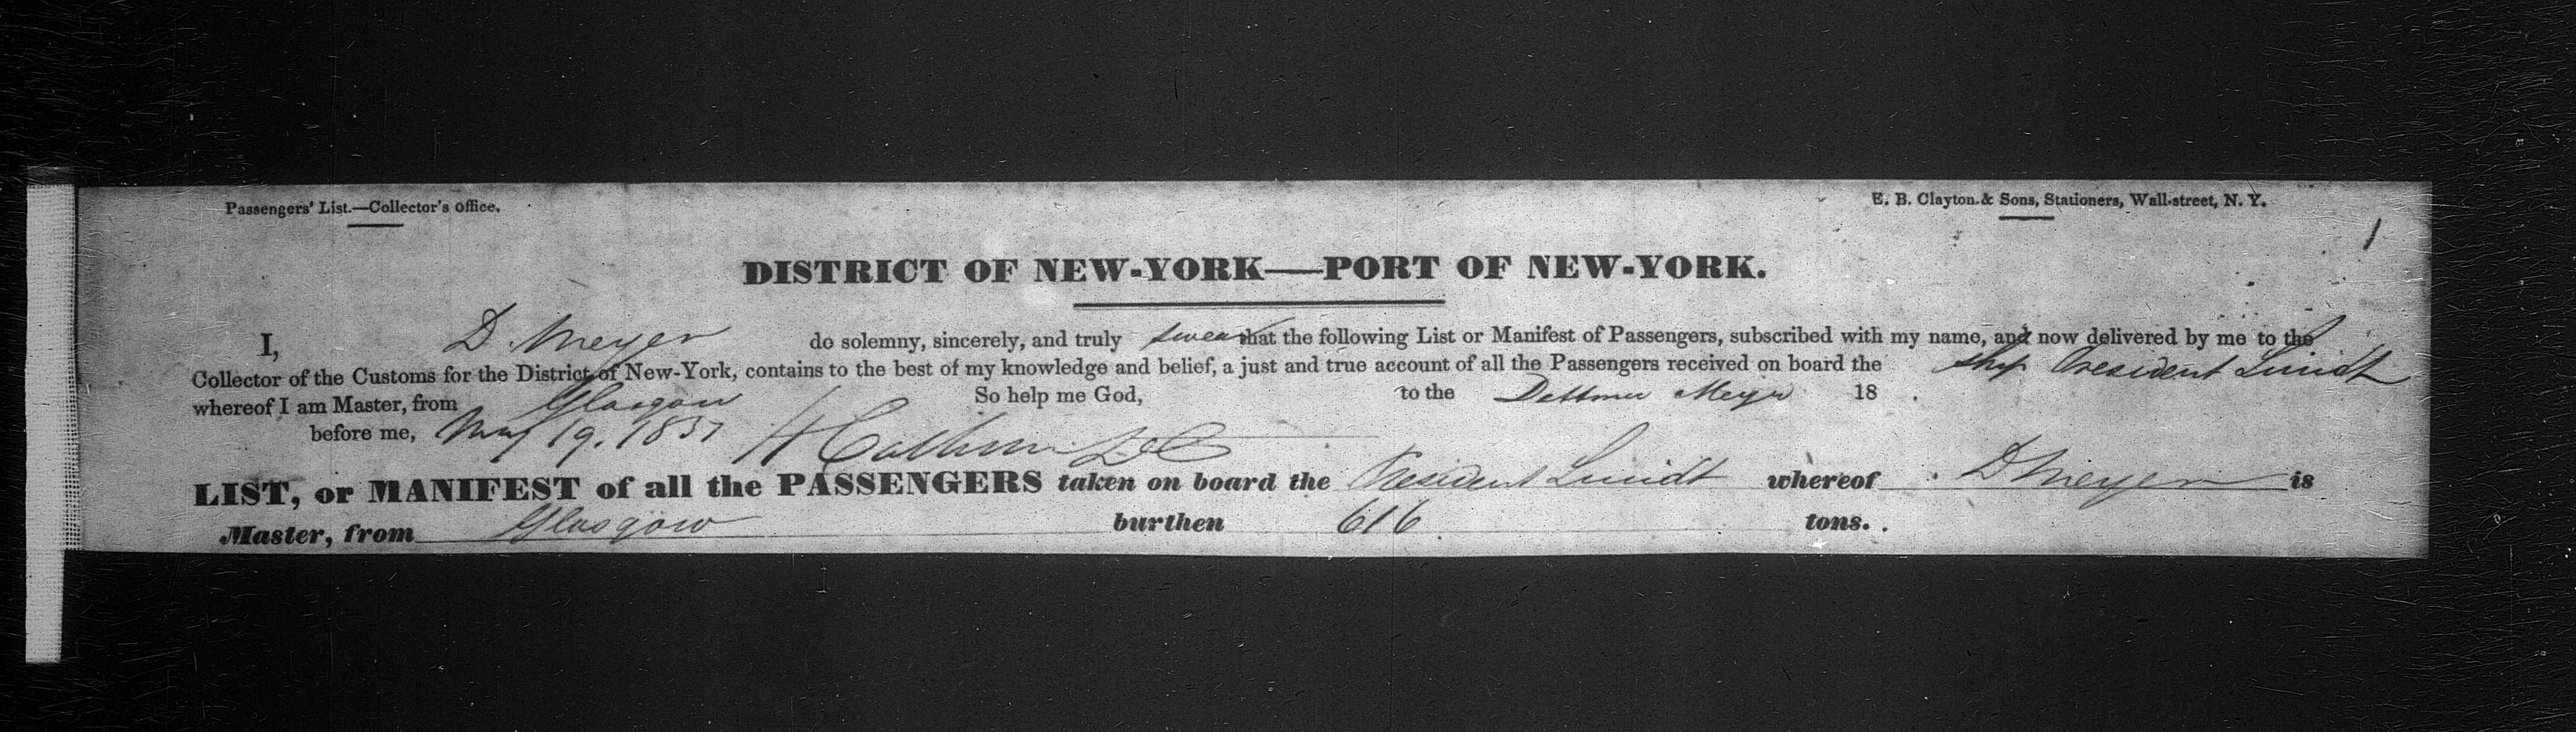 Passengers' List.—Collector's office.
E. B. Clayton & Sons, Stationers, Wall-street, N. Y.
1
DISTRICT OF NEW-YORK—PORT OF NEW-YORK.
I, D. Meyer do solemny, sincerely, and truly swear that the following List or Manifest of Passengers, subscribed with my name, and now delivered by me to the
Collector of the Customs for the District of New-York, contains to the best of my knowledge and belief, a just and true account of all the Passengers received on board the ship President Smidt
whereof I am Master, from Glasgow So help me God, to the Dettmer Meyer 18 .
before me, May 19. 1857 H Calhoun DC
LIST, or MANIFEST of all the PASSENGERS taken on board the President Smidt whereof D Meyer is
Master, from Glasgow burthen 616 tons.